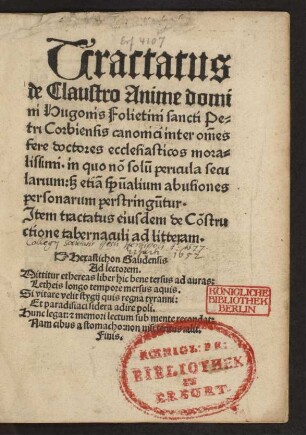 Ef 4107
Tractatus
de Claustro Anime domi
ni Hugonis Folietini sancti Pe
tri Corbiensis canonici inter om̄es
fere doctores ecclesiasticos mora⸗
lissimi. in quo nō solū pericula secu
larium: sꝫ etiā sp̄ualium abusiones
personarum perstringūtur.
Item tractatus eiusdem de Cōstru
ctione tabernaculi ad litteram.
Hexastichon Gaudensis
Ad lectorem.
Mittitur ethereas liber hic bene tersus ad auras:
Letheis longo tempore mersus aquis.
Si vitare velis stygii quis regna tyranni:
Et paradisiaci sidera adire poli.
Hunc legat: ⁊ memori lectum sub mente recondat:
Nam cibus a stomacho non nisi
Finis.
KÖNIGLICHE
BIBLIOTHEK
BERLIN
KOENIGL: PR:
BIBLIOTHEK
ZU
ERFURT.